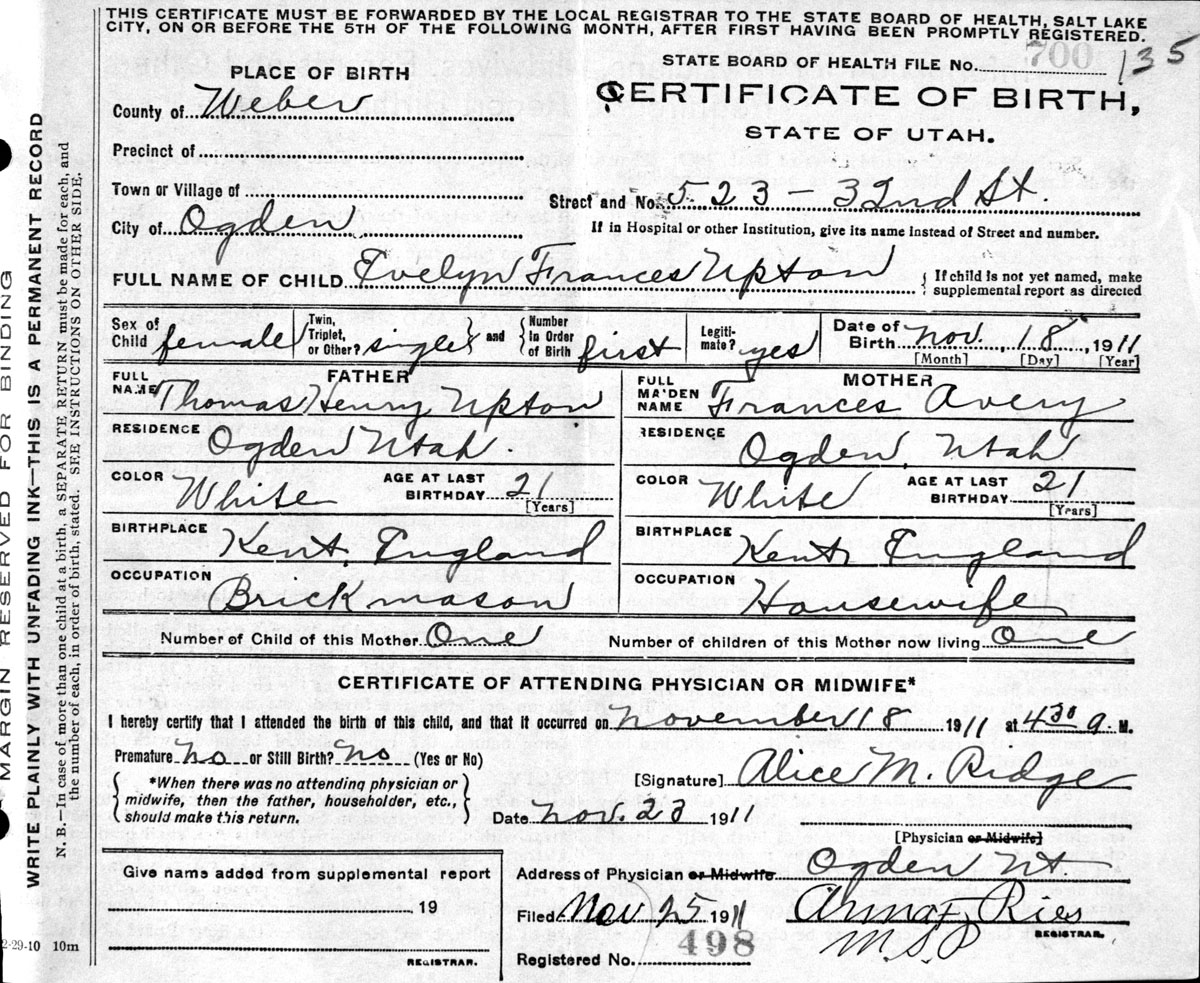 THIS CERTIFICATE MUST BE FORWARDED BY THE LOCAL REGISTRAR TO THE STATE BOARD OF HEALTH, SALT LAKE
CITY, ON OR BEFORE THE 5TH OF THE FOLLOWING MONTH, AFTER FIRST HAVING BEEN PROMPTLY REGISTERED.
STATE BOARD OF HEALTH FILE No. 700 135
PLACE OF BIRTH
CERTIFICATE OF BIRTH,
STATE OF UTAH.
County of Weber
Precinct of
Town or Village of
Street and No. 523 - 32nd St.
City of Ogden
If in Hospital or other Institution, give its name instead of Street and number.
FULL NAME OF CHILD Evelyn Frances Upton
{ If child is not yet named, make
supplemental report as directed
Sex of Child female
Twin, Triplet, or Other? single } and { Number in Order of Birth first
Legiti-mate? yes
Date of Birth Nov. 18, 1911
[Month] [Day] [Year]
FATHER
FULL NAME Thomas Henry Upton
RESIDENCE Ogden Utah.
COLOR White AGE AT LAST BIRTHDAY 21 [Years]
BIRTHPLACE Kent, England
OCCUPATION Brick mason
MOTHER
FULL MAIDEN NAME Frances Avery
RESIDENCE Ogden, Utah
COLOR White AGE AT LAST BIRTHDAY 21 [Years]
BIRTHPLACE Kent, England
OCCUPATION Housewife
Number of Child of this Mother One
Number of children of this Mother now living One
CERTIFICATE OF ATTENDING PHYSICIAN OR MIDWIFE*
I hereby certify that I attended the birth of this child, and that it occurred on November 18 1911 at 4 30 a. M.
Premature No or Still Birth? No (Yes or No)
{ *When there was no attending physician or
midwife, then the father, householder, etc.,
should make this return. }
[Signature] Alice M. Ridge
Date Nov. 23 1911
[Physician or Midwife]
Address of Physician or Midwife Ogden Ut.
Give name added from supplemental report
19
REGISTRAR.
Filed Nov 25 1911
Ries
REGISTRAR.
Registered No. 498
MARGIN RESERVED FOR BINDING
WRITE PLAINLY WITH UNFADING INK—THIS IS A PERMANENT RECORD
N. B.—In case of more than one child at a birth, a SEPARATE RETURN must be made for each, and
the number of each, in order of birth, stated. SEE INSTRUCTIONS ON OTHER SIDE.
2-29-10 10m